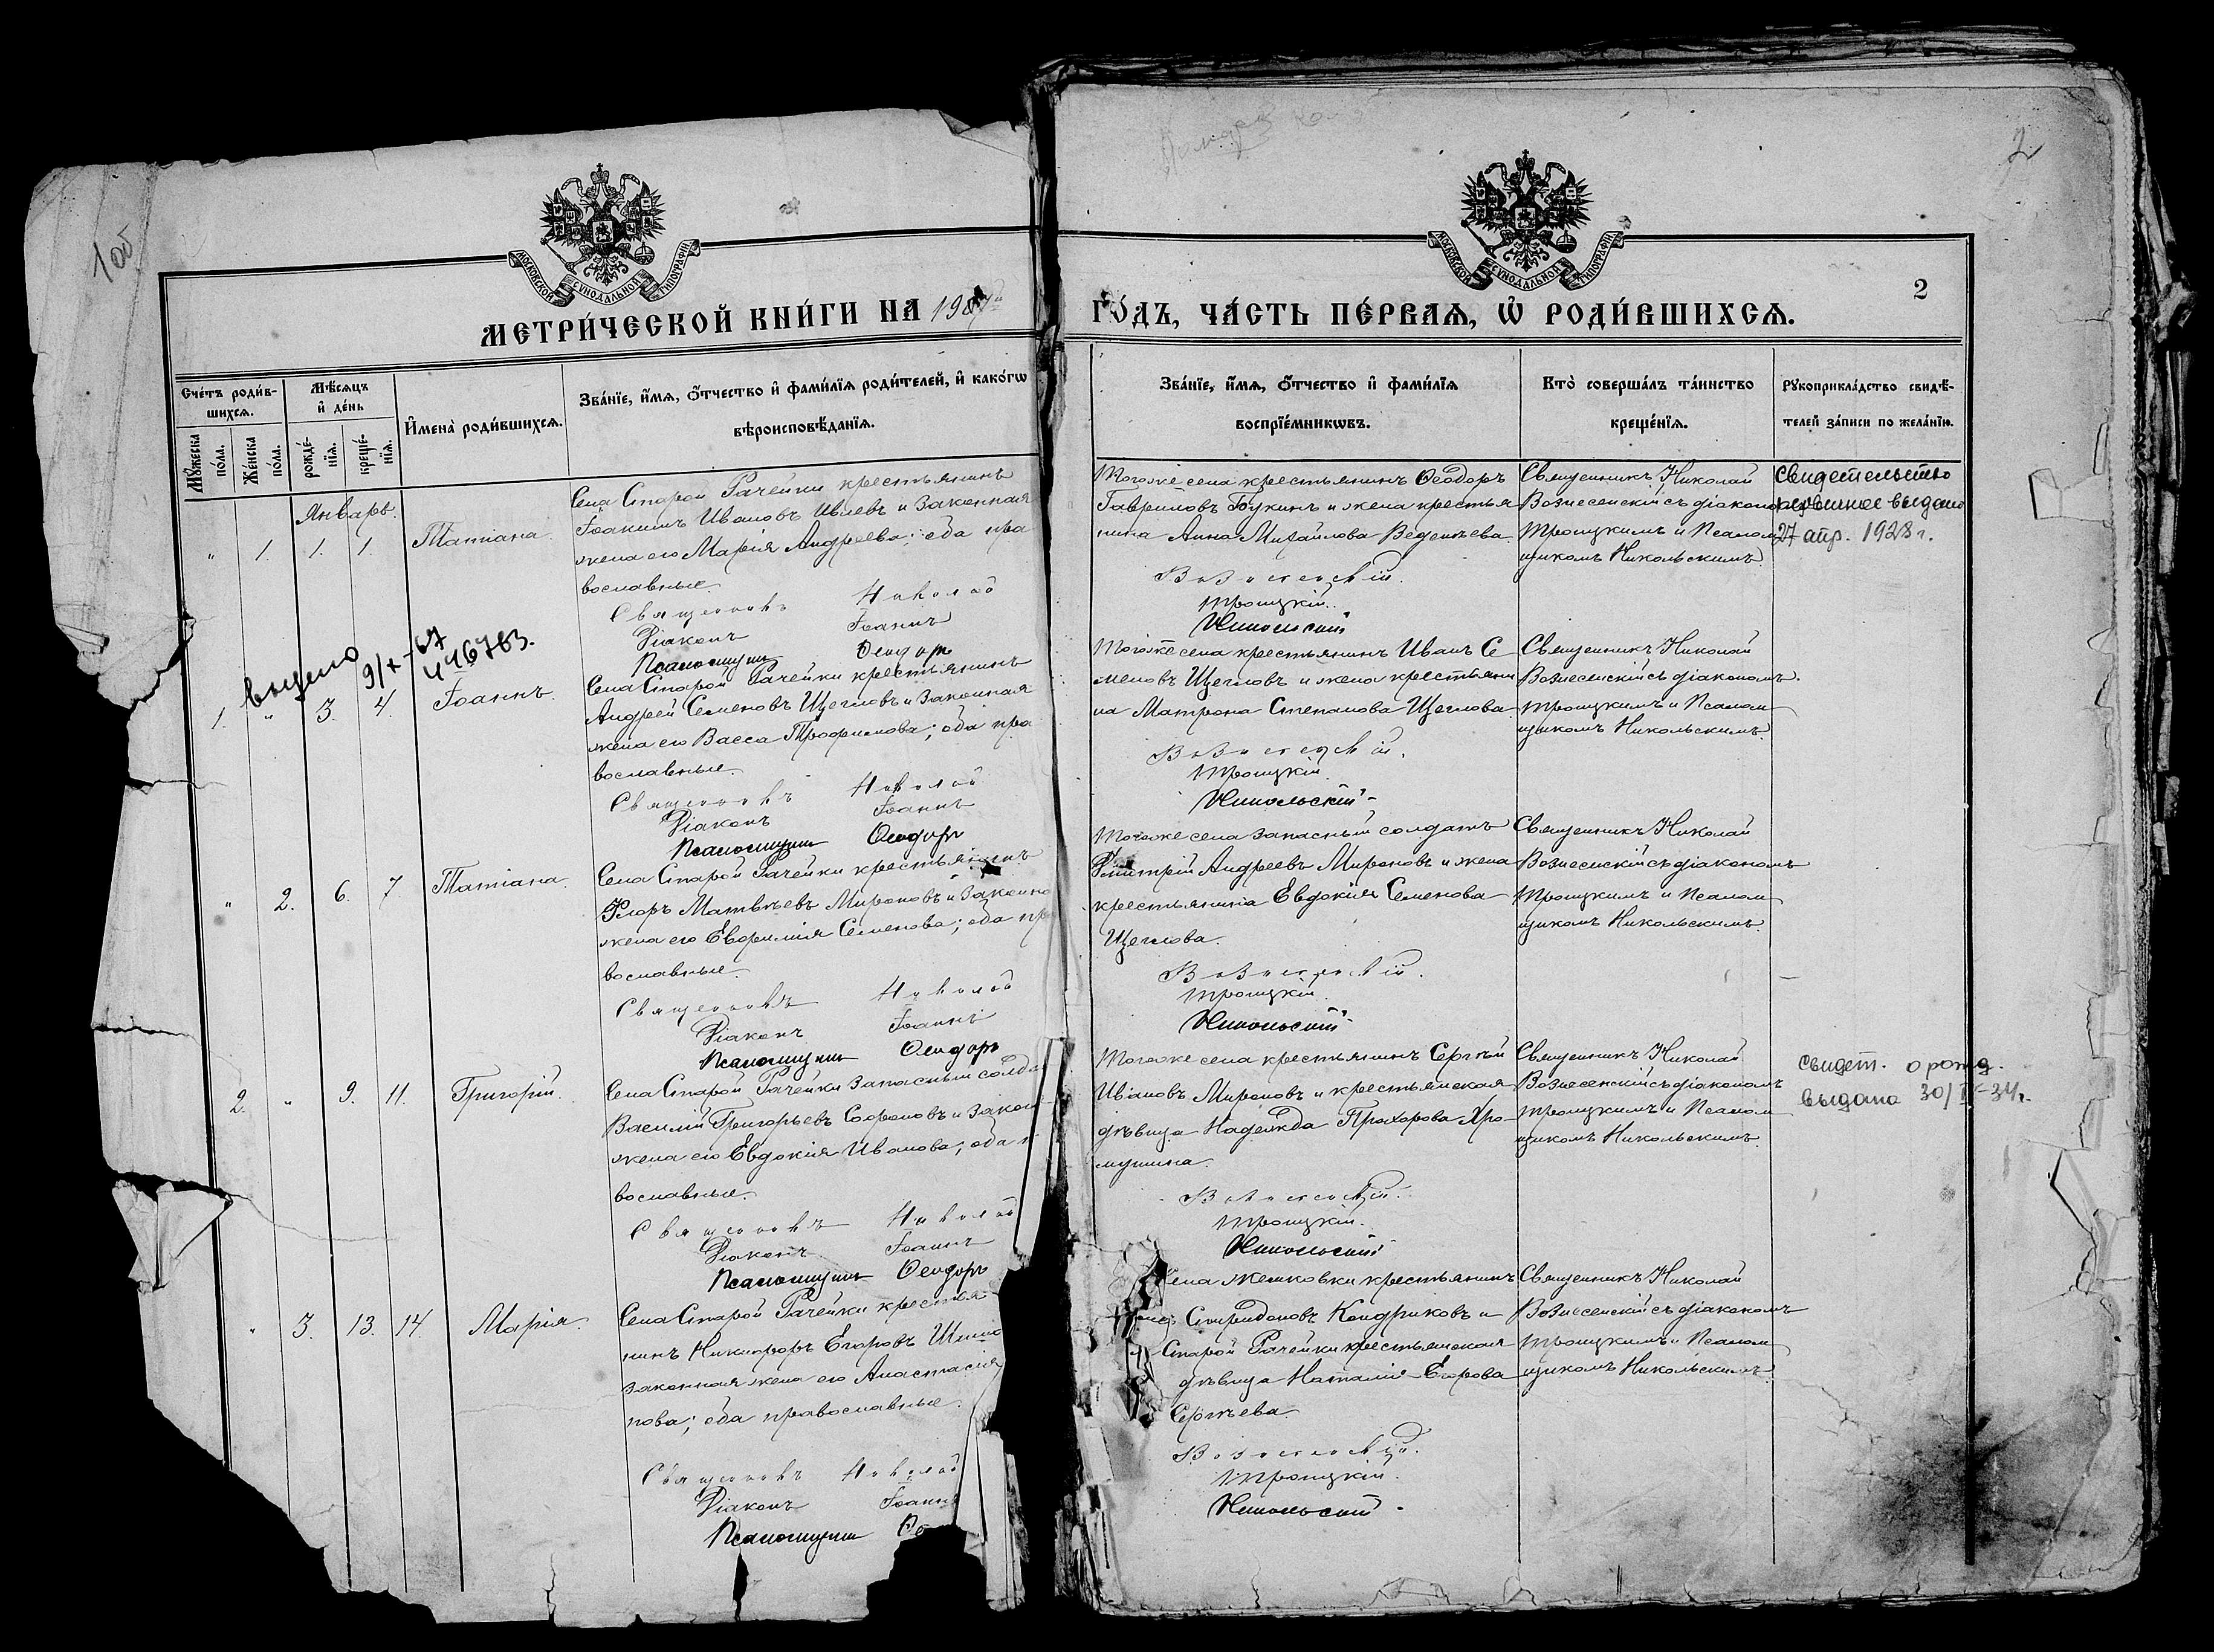 100
2
МОСКОВСКОЙ СѴНОДАЛЬНОЙ ТИПОГРАФІИ
МОСКОВСКОЙ СѴНОДАЛЬНОЙ ТИПОГРАФІИ
2
МЕТРИ́ЧЕСКОЙ КНИ́ГИ НА 1907 ГО́ДЪ, ЧА́СТЬ ПЕ́РВАѦ, Ѡ҆ РОДИ́ВШИХСѦ.
Сче́тъ роди́в-
шихсѧ.
Мꙋ́жеска
по́ла.
Же́нска
по́ла.
Мѣ́сѧцъ
и҆ де́нь
рожде́-
нїѧ.
креще́-
нїѧ.
И҆мена̀ роди́вшихсѧ.
Зва́нїе, и҆́мѧ, ѻ҆́тчество и҆ фами́лїѧ роди́телей, и҆ како́гѡ
вѣроисповѣ́данїѧ.
Зва́нїе, и҆́мѧ, ѻ҆́тчество и҆ фами́лїѧ
воспрїе́мникѡвъ.
Кто̀ соверша́лъ та́инство
креще́нїѧ.
Рꙋкоприкла́дство свидѣ́-
телей за́писи по жела́нїю.
Январь.
" 1. 1. 1. Татіана.
Села Старой Рачейки крестьянинъ
Іоакимъ Ивановъ Ивлевъ и законная
жена его Марія Андреева; оба пра
вославные.
Священникъ Николай
Діаконъ Іоаннъ
Псаломщикъ Ѳеодоръ
Тогоже села крестьянинъ Ѳеодоръ
Гавриловъ Букинъ и жена крестья
нина Анна Михайлова Веденѣева.
Вознесенскій.
Троицкій.
Никольскій
Священникъ Николай
Вознесенскій съ діакономъ
Троицкимъ и Псалом
щикомъ Никольскимъ.
Свидетельство
выдано
27 апр. 1928 г.
выдано
9/X-67
446763.
1. " 3. 4. Іоаннъ.
Села Старой Рачейки крестьянинъ
Андрей Семеновъ Щегловъ и законная
жена его Васса Трофимова; оба пра
вославные.
Священникъ Николай
Діаконъ Іоаннъ
Псаломщикъ Ѳеодоръ
Тогоже села крестьянинъ Иванъ Се
меновъ Щегловъ и жена крестьяни
на Матрона Степанова Щеглова.
Вознесенскій.
Троицкій.
Никольскій
Священникъ Николай
Вознесенскій съ діакономъ
Троицкимъ и Псалом
щикомъ Никольскимъ.
" 2. 6. 7. Татіана.
Села Старой Рачейки крестьянинъ
Флоръ Матвѣевъ Мироновъ и законна
жена его Евфимія Семенова; оба пра
вославные.
Священникъ Николай
Діаконъ Іоаннъ
Псаломщикъ Ѳеодоръ
Тогоже села запасный солдатъ
Димитрій Андреевъ Мироновъ и жена
крестьянина Евдокія Семенова
Щеглова.
Вознесенскій.
Троицкій.
Никольскій
Священникъ Николай
Вознесенскій съ діакономъ
Троицкимъ и Псалом
щикомъ Никольскимъ.
2. " 9. 11. Григорій.
Села Старой Рачейки запасный солда
Василій Григорьевъ Софоновъ и закон
жена его Евдокія Иванова; оба п
вославные.
Священникъ Николай
Діаконъ Іоаннъ
Псаломщикъ Ѳеодоръ
Тогоже села крестьянинъ Сергѣй
Ивановъ Мироновъ и крестьянская
дѣвица Надежда Прохорова Хро-
мушина.
Вознесенскій.
Троицкій.
Никольскій
Священникъ Николай
Вознесенскій съ діакономъ
Троицкимъ и Псалом
щикомъ Никольскимъ.
Свидет. о рожд.
выдано 30/IX-34г.
" 3. 13. 14. Марія.
Села Старой Рачейки крестья
нинъ Никифоръ Егоровъ
законная жена его Анастасія
пова; оба православные.
Священникъ Николай
Діаконъ Іоаннъ
Псаломщикъ
Села крестьянинъ
Спиридоновъ Кондриковъ и
Старой Рачейки крестьянская
дѣвица Наталія Егорова
Сергѣева.
Вознесенскій.
Троицкій.
Никольскій
Священникъ Николай
Вознесенскій съ діакономъ
Троицкимъ и Псалом
щикомъ Никольскимъ.